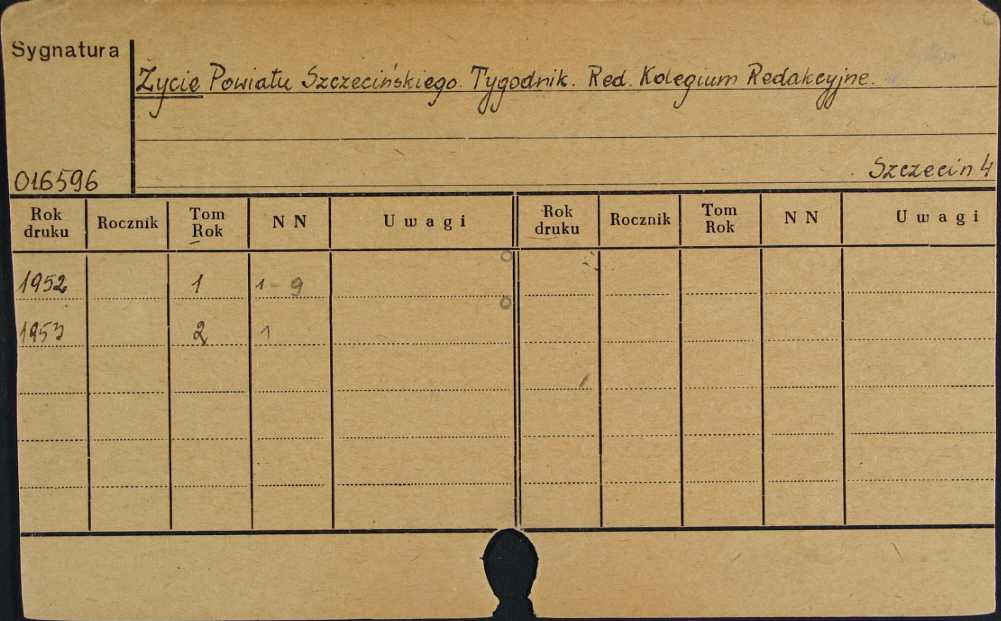 Sygnatura
Życie Powiatu Szczecińskiego. Tygodnik. Red. Kolegium Redakcyjne.
016596
Szczecin 4
Rok druku Rocznik Tom Rok N N Uwagi Rok druku Rocznik Tom Rok N N Uwagi
1952 1 1-9
1953 2 1